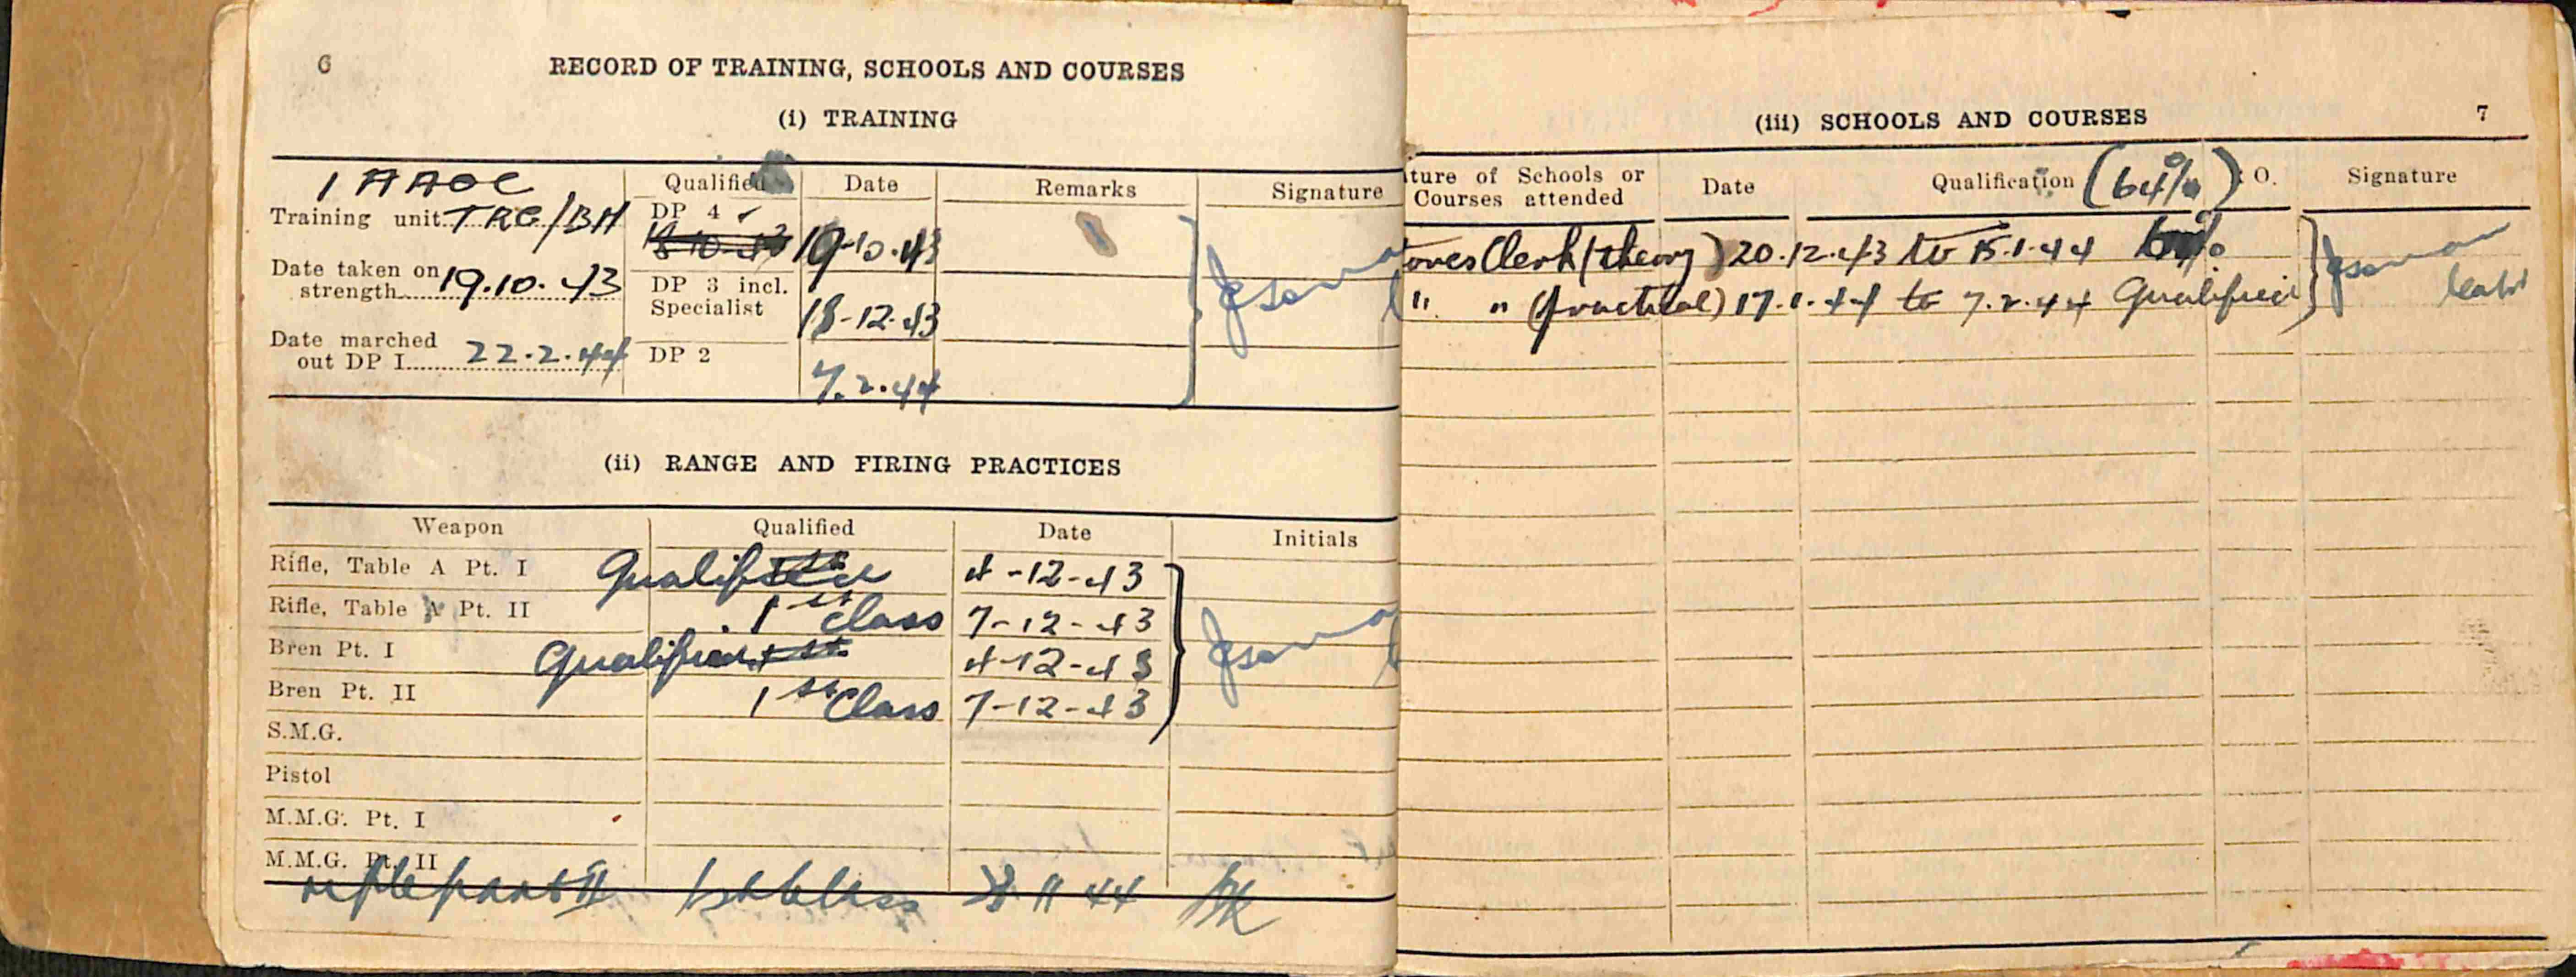 6
RECORD OF TRAINING, SCHOOLS AND COURSES
(i) TRAINING
1 AAOC
Training unit TRG/BH
Date taken on
strength 19.10.43
Date marched
out DP I 22.2.44
Qualified Date Remarks Signature
DP 4 19-10-43
DP 3 incl.
Specialist 18-12-43
DP 2
7.2.44
(ii) RANGE AND FIRING PRACTICES
Weapon Qualified Date Initials
Rifle, Table A Pt. I Qualified 4-12-43
Rifle, Table A Pt. II 1st Class 7-12-43
Bren Pt. I Qualified 4-12-43
Bren Pt. II 1st Class 7-12-43
S.M.G.
Pistol
M.M.G. Pt. I
M.M.G. Pt. II
rifle part II 1st Class 28 11 44
7
(iii) SCHOOLS AND COURSES
ture of Schools or
Courses attended
Date Qualification (64%) O. Signature
ores Clerk (theory) 20.12.43 to 15.1.44
" " (practical) 17.1.44 to 7.2.44 Qualified